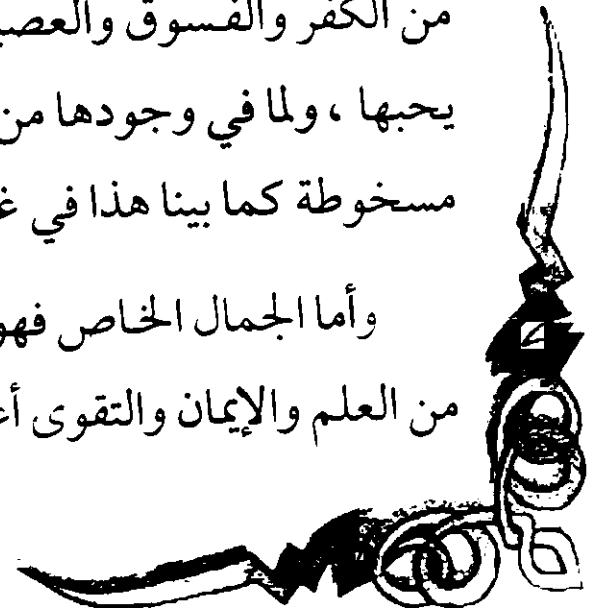 من الكفر والفسوق والعصي
يحبها ، ولما في وجودها من
مسخوطة كما بينا هذا في غ
وأما الجمال الخاص فهو
من العلم والإيمان والتقوى أع